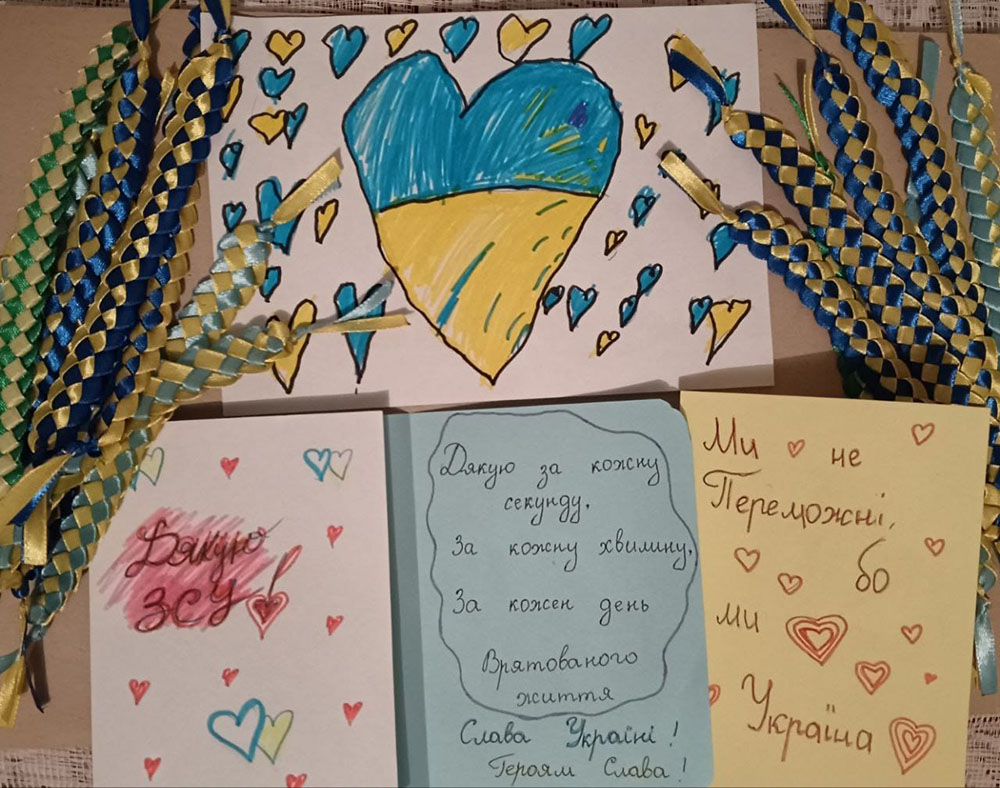 Дякую
ЗСУ!
Дякую за кожну
секунду,
За кожну хвилину,
За кожен день
Врятованого
життя
Слава Україні!
Героям Слава!
Ми не
Переможні,
бо
ми
Україна